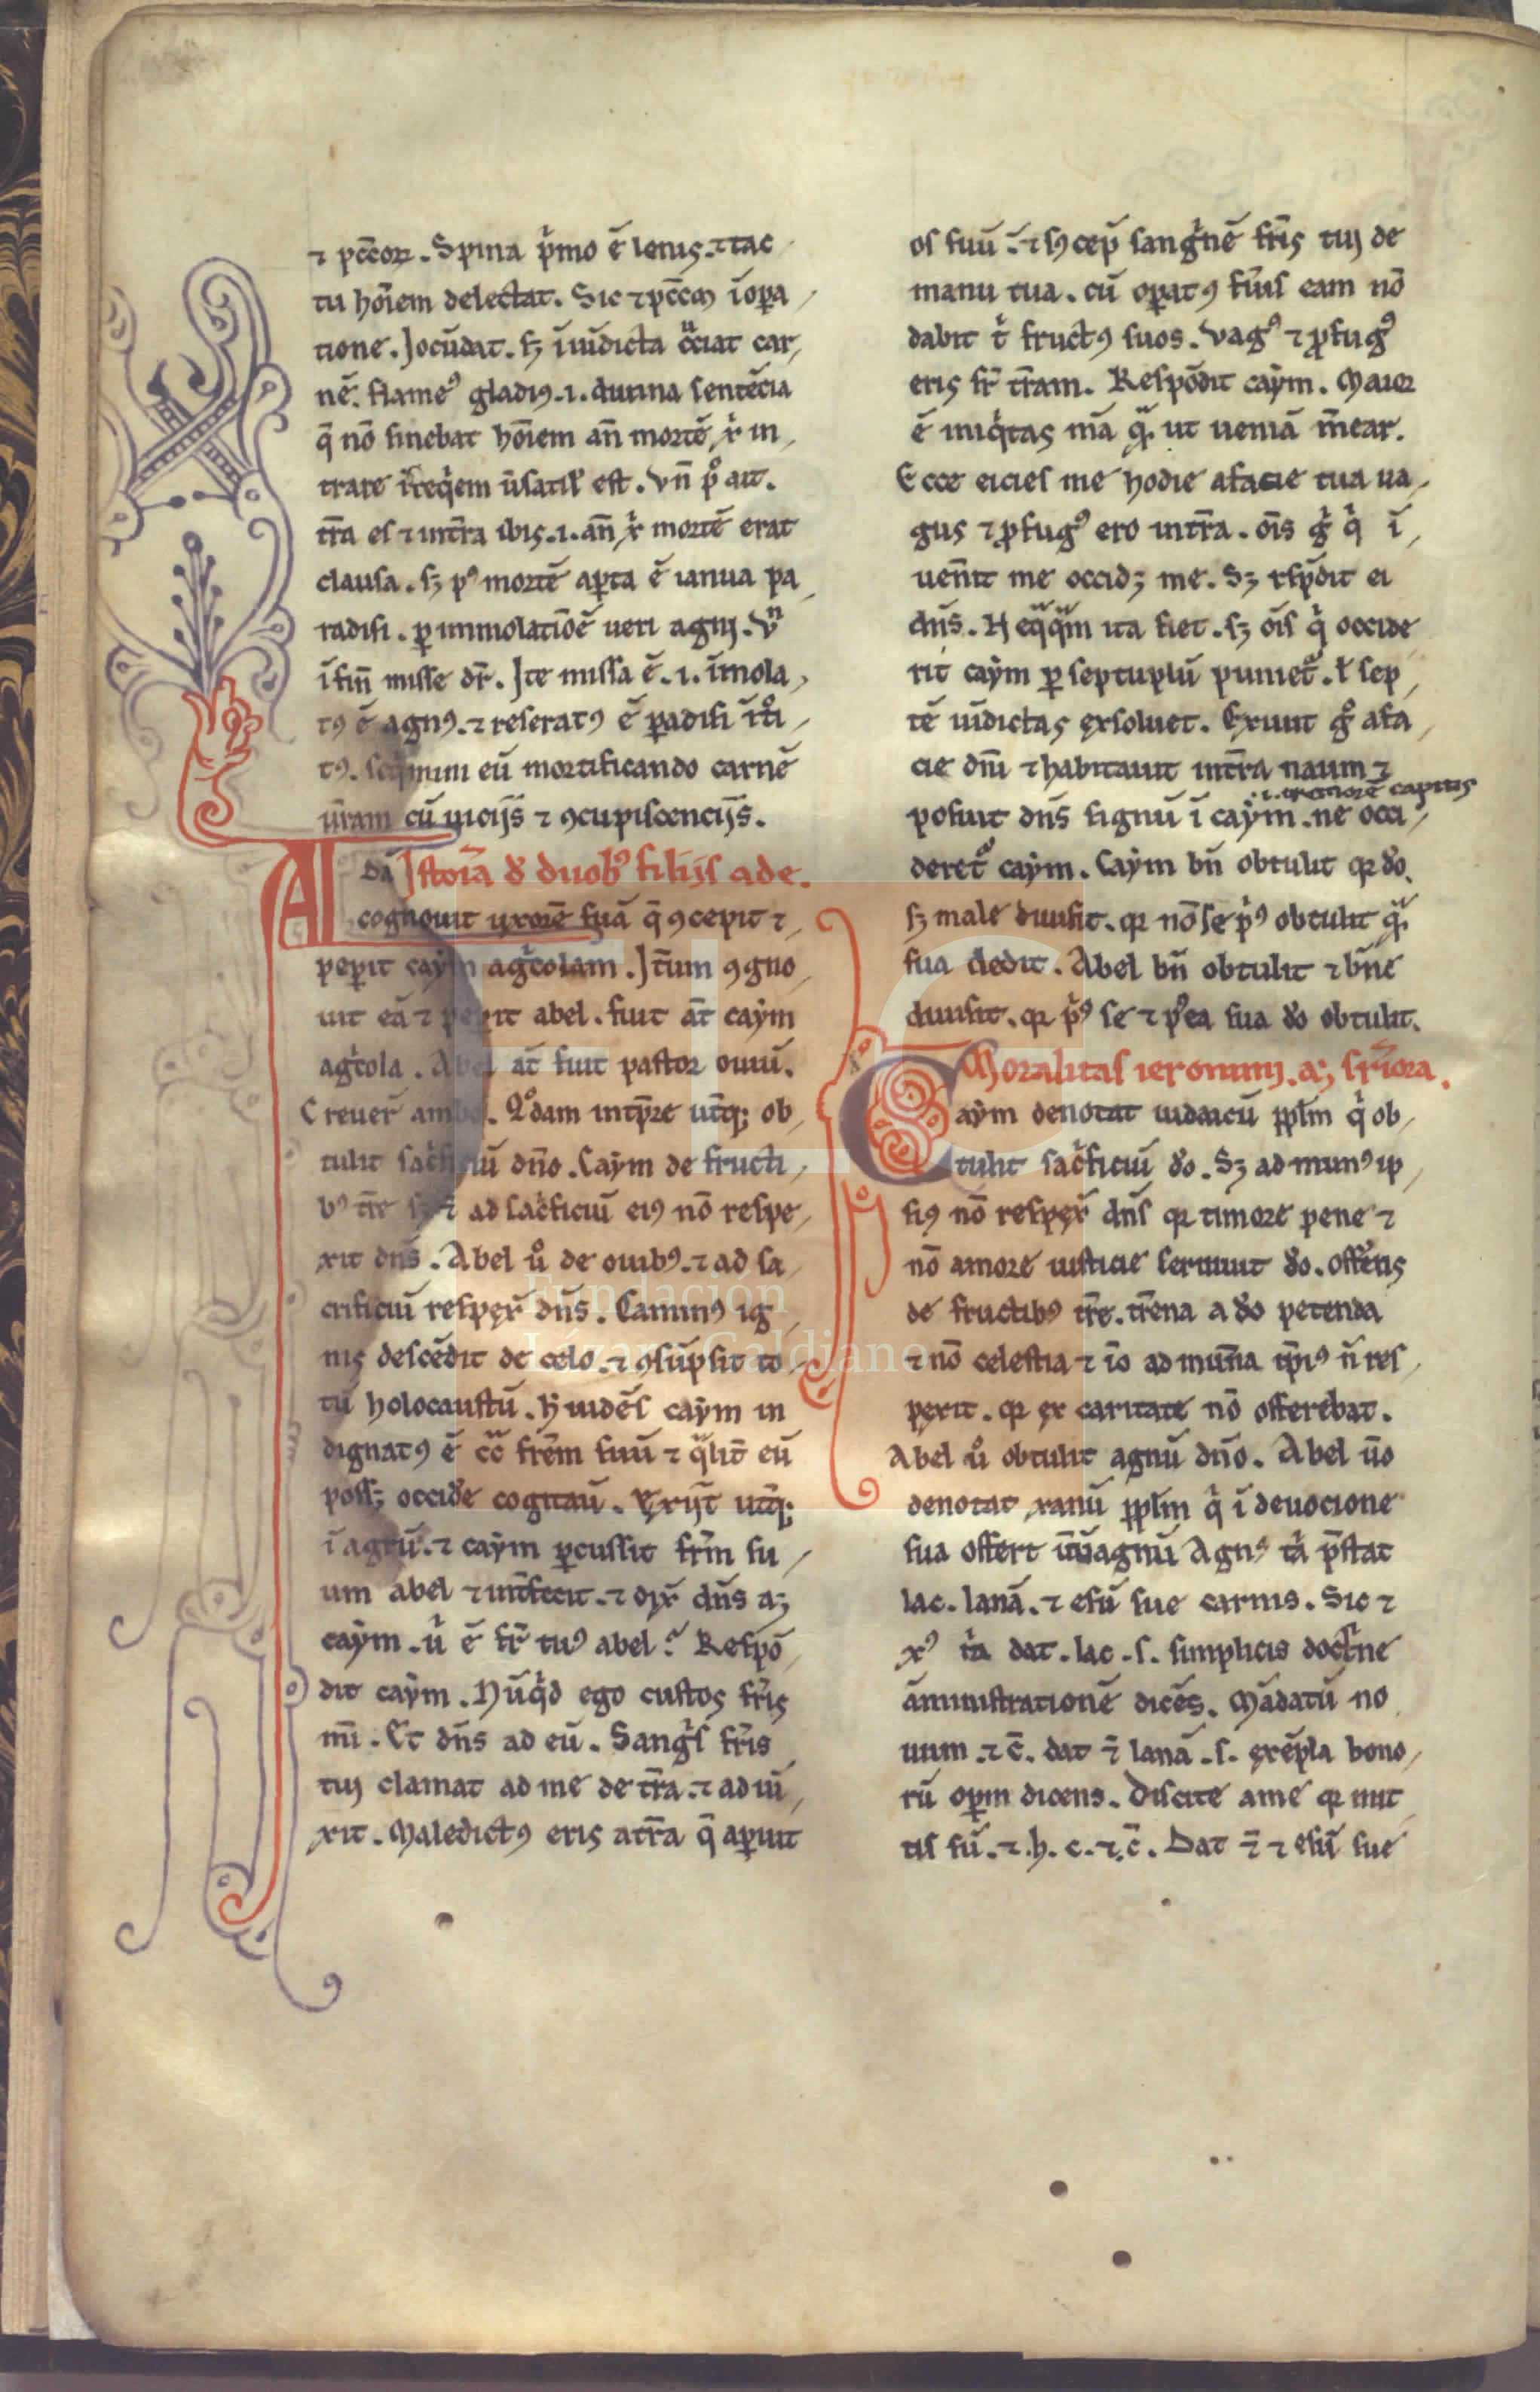 ⁊ pc̄cor̄. Spina pͥmo ē lenis. ⁊ tac
tu hoīem delectat. Sic ⁊ pc̄cm̄ ī oꝑa
tione. Jocūdat. sꝫ ī uīdicta car
nē. flameꝰ gladiꝰ .i. diuina sentēcia
q̄ nō sinebat hōiem an̄ mortē xͥ in
trare est. vn̄ pͦ ait.
tr̄a es ⁊ in tr̄a ibis .i. an̄ xͥ mortē erat
clausa. sꝫ pꝰ mortē aꝑta ē ianua pa
radisi. ꝑ immolatiōē ueri agnj. Vn̄
ī fin̄ misse dr̄. Jte missa ē .i. īmola
tꝰ ē agnꝰ. ⁊ reseratꝰ ē ꝑadisi
tꝰ. eū mortificando carnē
ur̄am cū uicijs ⁊ ꝯcupiscencijs.
Jstoria d̄ duobꝰ filijs ade.
Adā
cognouit uxorē suā q̄ ꝯcepit ⁊
peꝑit caẏm agͥcolam. Jt̄um ꝯgno
uit eā ⁊ peꝑit abel. fuit āt caẏm
agͥcola. Abel āt fuit pastor ouiū.
Creuer̄ ambo. Qͦdam int̄p̄re ut̄qꝫ ob
tulit sacͥficiū dn̄o. Caẏm de fructi
bꝰ tr̄e sꝫ ad sacͥficiū eiꝰ nō respe
xit dn̄s. Abel uͦ de ouibꝰ. ⁊ ad sa
crificiū respex̄ dn̄s. Caminꝰ ig
nis descēdit de celo. ⁊ ꝯsūpsit to
tū holocaustū. H̄ uidēs caẏm in
dignatꝰ ē cͣ fr̄em suū ⁊ qͣlit̄ eū
possꝫ occid̄e cogitau̅. Exijt ut̄qꝫ
ī agrū. ⁊ caẏm ꝑcussit fr̄m su
um abel ⁊ int̄fecit. ⁊ dix̄ dn̄s aꝫ
caẏm. uͥ ē fr̄ tuꝰ abel? Respō
dit caẏm. Nūqͥd ego custos fr̄is
mī. Et dn̄s ad eū. Sangͥs fr̄is
tuj clamat ad me de tr̄a. ⁊ adiū
xit. Maledictꝰ eris a tr̄a q̄ aꝑuit
os suū. ⁊ sꝯcep̄ sangͥnē fr̄is tuj de
manu tua. cū oꝑatꝰ fu̅is eam nō
dabit tͥ fructꝰ suos. Vagꝰ ⁊ ꝓfugꝰ
eris sr̄ tr̄am. Respōdit caẏm. Maior
ē iniqͥtas mā qͣ. ut ueniā m̄ear.
Ecce eicies me hodie a facie tua ua
gus ⁊ ꝓfugꝰ ero in tr̄a. oīs gͥ qͥ ī
uen̄it me occidꝫ me. Sꝫ rsp̄dit ei
dn̄s. Neqͣqͣm ita fiet. sꝫ oīs qͥ occide
rit caẏm ꝑ septuplū punietᷣ. ł sep
tē uīdictas exsoluet. Exiuit gͦ a fa
cie dn̄i ⁊ habitauit in tr̄a naum ⁊
.i. tremorē capitis
posuit dn̄s signū ī caẏm. ne occi
deretᷣ caẏm. Caẏm bn̄ obtulit qꝛ d̄o.
sꝫ male diuisit. qꝛ nō se pͥꝰ obtulit qͣ.
sua dedit. Abel bn̄ obtulit ⁊ bn̄e
diuisit. qꝛ pͥꝰ se ⁊ pͦea sua d̄o obtulit.
Moralitas ieronimi. aꝫ
Caẏm denotat iudaicū pp̄lm qͥ ob
tulit sacͥficiuī d̄o. Sꝫ ad munꝰ ip
siꝰ nō respex̄ dn̄s qꝛ timore pene ⁊
nō amore iusticie seruiuit d̄o. offe̅ns
de fructibꝰ tr̄e. tr̄ena a d̄o petenda
⁊ nō celestia ⁊ iō ad mun̄a ip̄iꝰ n̄ res
pexit. qꝛ ex caritate nō offerebat.
Abel uͦ obtulit agnū dn̄o. Abel u̅o
denotat xanū pp̄lm qͥ ī deuocione
sua offert agnū Agnꝰ tͥa p̄stat
lac. lanā. ⁊ esū sue carnis. Sic ⁊
xꝰ tͥa dat. lac .s. simplicis doctͥne
āministrationē dicēs. Mādatū no
uum .⁊ c̄. dat lanā .s. exēpla bono
rū oꝑm dicens. Discite a me qꝛ mit
tis sū. ⁊ .h. c. ⁊ c̄. Dat ⁊ esū sue
Fundación
Lázaro Galdiano